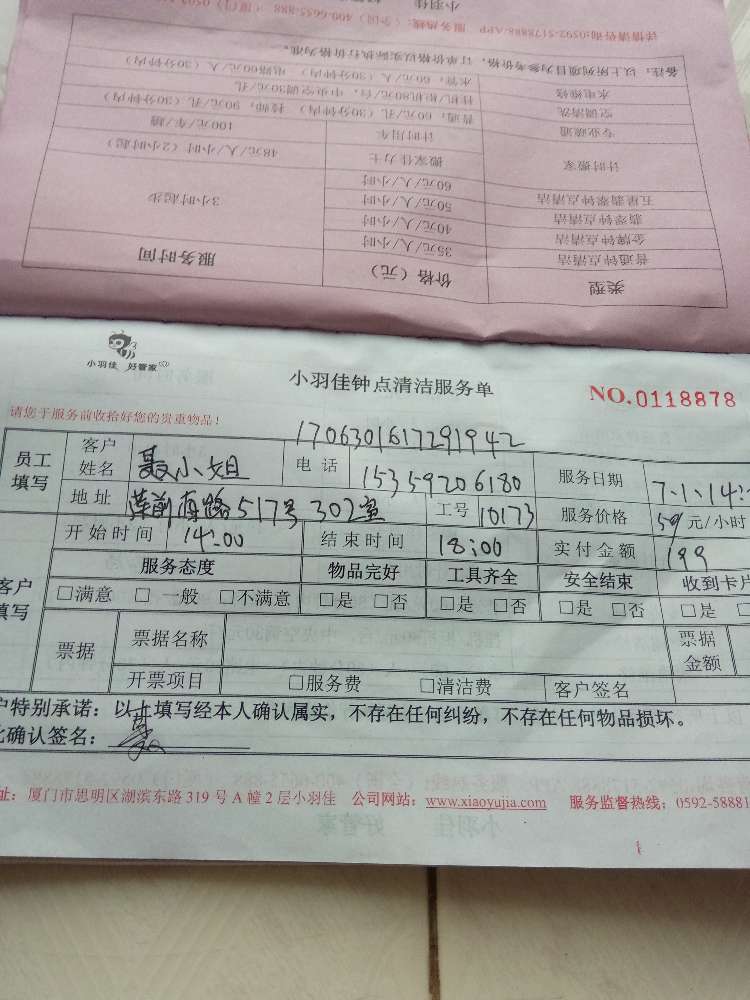 小羽佳 好管家
详情请咨询:0592-5178888·APP 服务热线：（全国）400-6655-888（厦门）0592-
备注：以上所列项目为参考价格，订单价格以实际执行价格为准。
水电维修 水管：60元/人/（30分钟内） 电路60元/人/（30分钟内）
空调清洗 挂机/柜机80元/台，中央空调30元/孔
专业疏通 普通：60元/孔（30分钟内） 技师：90元/孔（30分钟内）
计时用车 100元/车/趟
计时搬家 搬家佳力士 48元/人/小时（2小时起）
五星翡翠钟点清洁 60元/人/小时
翡翠钟点清洁 50元/人/小时 3小时起步
金牌钟点清洁 40元/人/小时
普通钟点清洁 35元/人/小时
类型 价格（元） 服务时间
小羽佳 好管家
小羽佳钟点清洁服务单
NO.0118878
请您于服务前收拾好您的贵重物品！
1706301617291942
员工填写 客户姓名 聂小姐 电话 15359206180 服务日期 7.1.14:
地址 莲前西路517号302室 工号 10173 服务价格 59元/小时
开始时间 14:00 结束时间 18:00 实付金额 199
客户填写 服务态度 物品完好 工具齐全 安全结束 收到卡片
□满意 □一般 □不满意 □是 □否 □是 □否 □是 □否 □是
票据 票据名称 票据金额
开票项目 □服务费 □清洁费 客户签名
户特别承诺：以上填写经本人确认属实，不存在任何纠纷，不存在任何物品损坏。
此确认签名： 聂
址：厦门市思明区湖滨东路319号A幢2层小羽佳 公司网站：www.xiaoyujia.com 服务监督热线：0592-58881